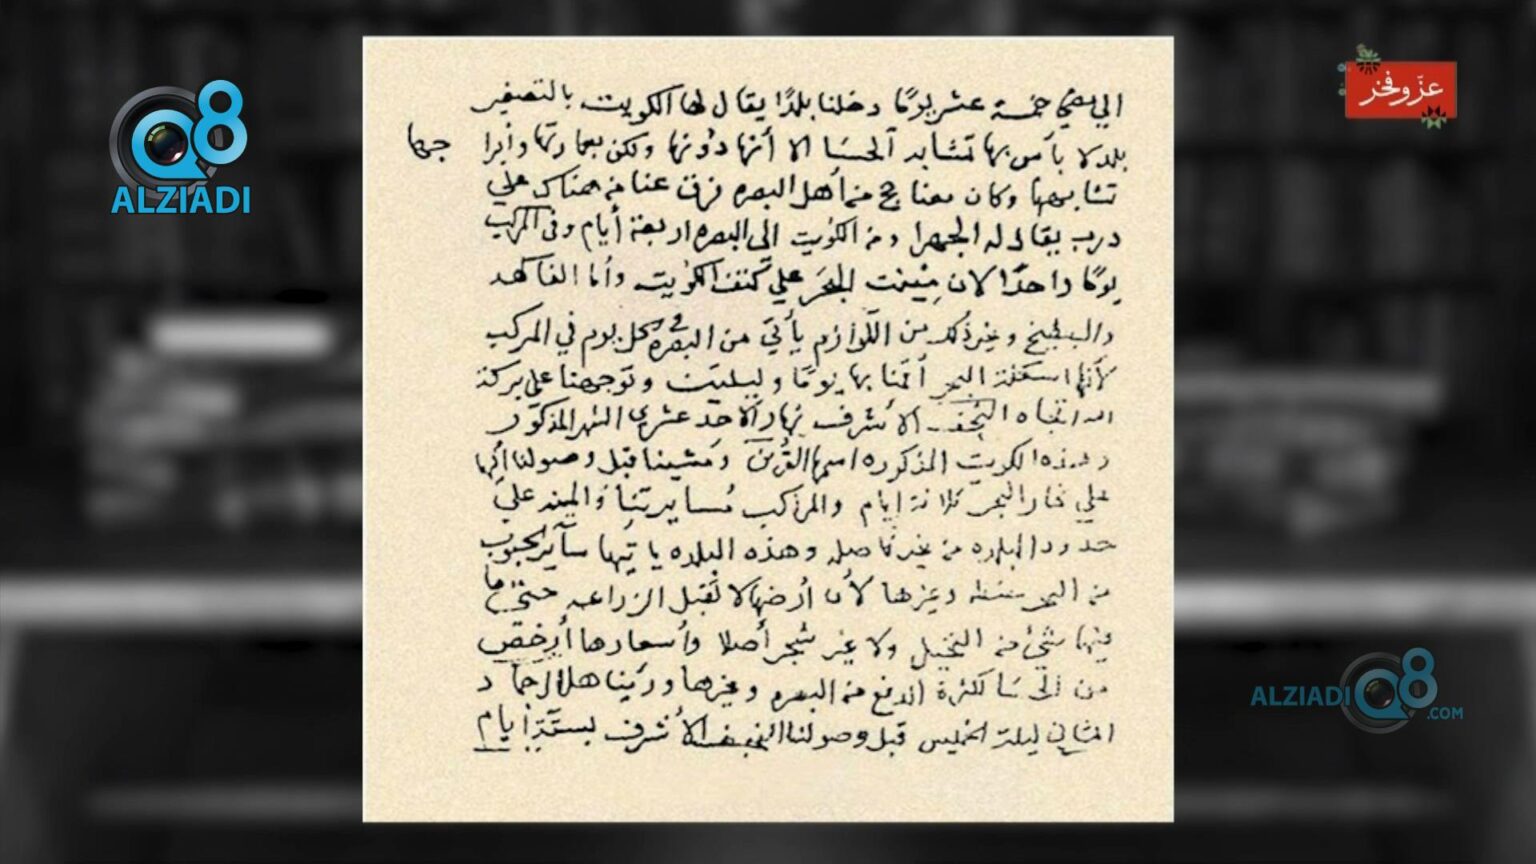 Q8
ALZIADI
عزّ وفخر
الي مضي خمسة عشر يومًا دخلنا بلدًا يقال لها الكويت بالتصغير
بلد لا بأس بها تشابه الحسا الا أنها دونها ولكن بعمارتها وأبرا
جها
تشابهها وكان معنا حج من أهل البصره فرق عنا من هناك علي
درب يقال له الجهرا ومن الكويت الي البصره اربعة أيام وفي المركب
يومًا واحدًا لان مينت البحر علي كتف الكويت وأما الفاكهه
والبطيخ وغير ذلك من اللوازم يأتي من البصره كل يوم في المركب
لأنها اسكلة البحر أقمنا بها يومًا وليلتين وتوجهنا علي بركة
الله اتجاه النجف الأشرف نهار الأحد عشر من الشهر المذكور
وهذه الكويت المذكوره اسمها القرين ومشينا قبل وصولنا إليها
علي بحار البحر ثلاثة ايام والمراكب مسايرتنا والمينه علي
حدود البلده من غير فاصله وهذه البلده ياتيها سآير الحبوب
من البحر حنطه وغيرها لأن أرضها لا تقبل الزراعه حتي ما
فيها شيء من النخيل ولا غير شجر أصلا وأسعارها أرخص
من الحسا لكثرة الدفع من البصره وغيرها ورئينا هلال جماد
الثاني ليلة الخميس قبل وصولنا النجف الأشرف بستة أيام
ALZIADI Q8 .COM